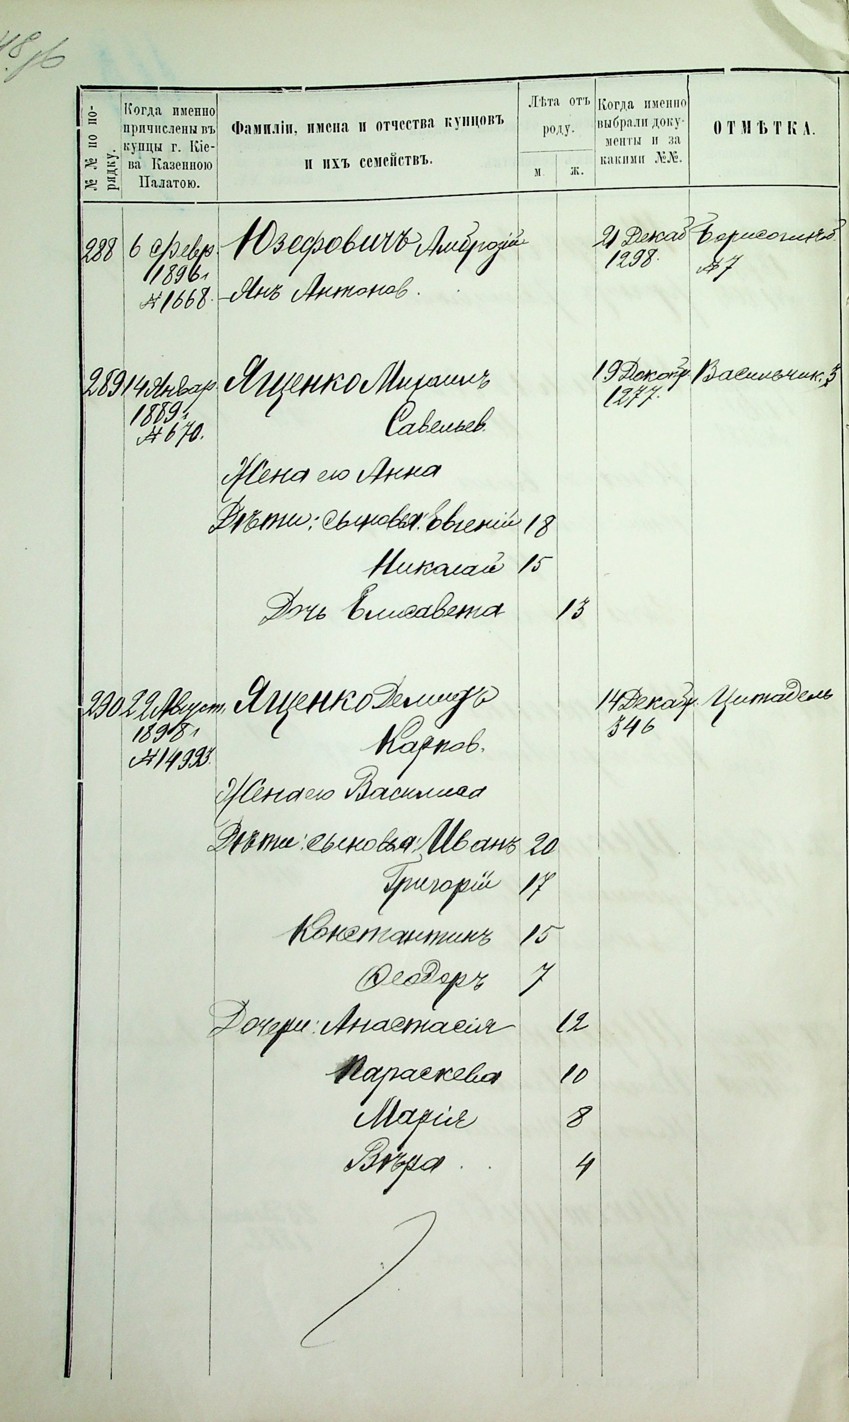 № № по порядку.
Когда именно причислены въ купцы г. Кіева Казенною Палатою.
Фамиліи, имена и отчества купцовъ и ихъ семействъ.
Лѣта отъ роду.
м.
ж.
Когда именно выбрали документы и за какими №№.
ОТМѢТКА.
288 6 Февр. Юзефовичъ Амброзій 21 Декаб
1896 г. 1298. № 7
№ 1668. Янъ Антонов.
289 14 Январ. Ященко Михаилъ 19 Декабр. Васильчик. 3
1889 г. Савельев. 1277.
№ 670.
Жена его Анна
Дѣти: сыновья: Евгеній 18
Николай 15
Дочь Елисавета 13
290 22 Август. Ященко Демидъ 14 Декабр. Цитадель
1898 г. Карпов. 346
№ 14993.
Жена его Василиса
Дѣти: сыновья: Иванъ 20
Григорій 17
Константинъ 15
Ѳеодоръ 7
Дочери: Анастасія 12
Параскева 10
Марія 8
Вѣра 4